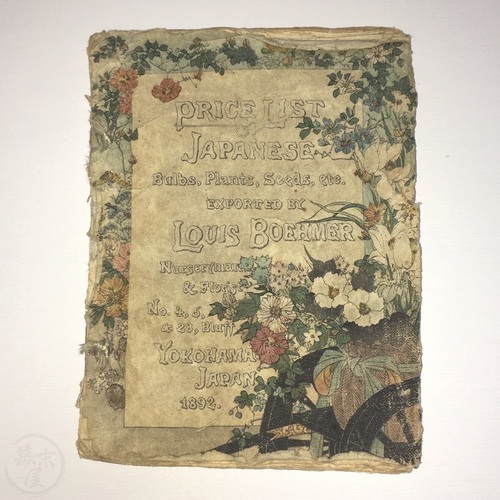 PRICE LIST
OF
JAPANESE
Bulbs, Plants, Seeds, etc.
EXPORTED BY
LOUIS BOEHMER
Nurseryman
& Florist
No. 4, 5,
& 28, Bluff
YOKOHAMA
JAPAN
1892.
幕末屋